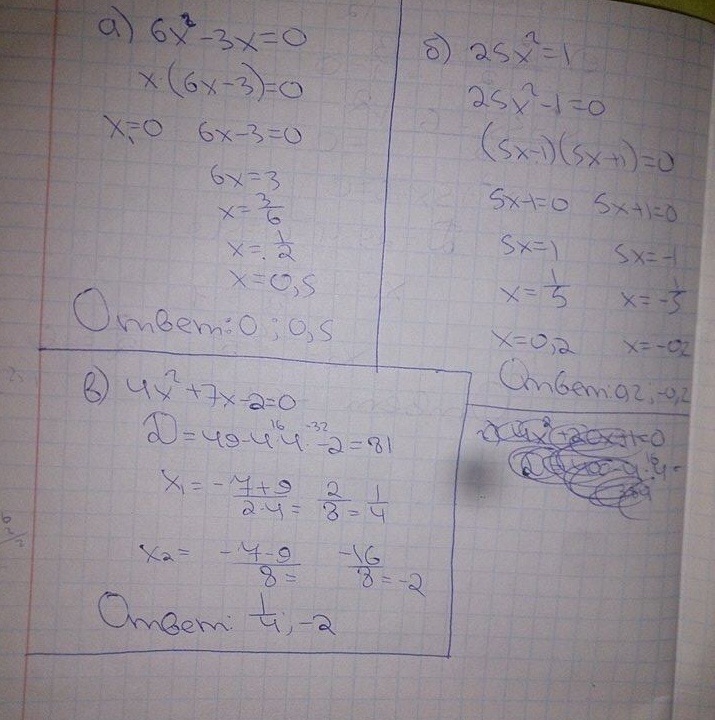 а) 6x²-3x=0
x·(6x-3)=0
x₁=0 6x-3=0
6x=3
x=3/6
x=1/2
x=0,5
Ответ: 0; 0,5
б) 25x²=1
25x²-1=0
(5x-1)(5x+1)=0
5x-1=0 5x+1=0
5x=1 5x=-1
x=1/5 x=-1/5
x=0,2 x=-0,2
Ответ: 0,2; -0,2
в) 4x²+7x-2=0
D=49-4·4·-2=81
16 -32
x₁= -7+9/2·4= 2/8= 1/4
x₂= -7-9/8= -16/8=-2
Ответ: 1/4; -2